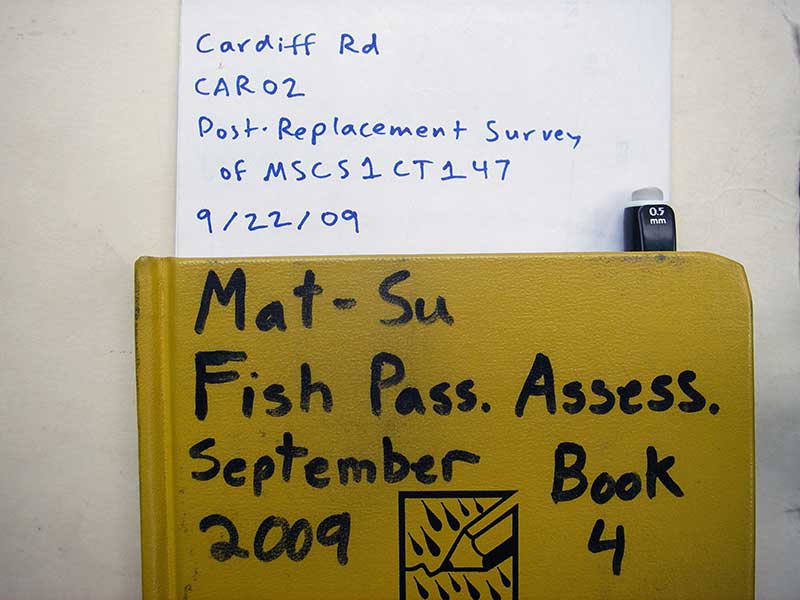 Cardiff Rd
CAR02
Post-Replacement Survey
of MSCS1CT147
9/22/09
0.5
mm
Mat-Su
Fish Pass. Assess.
September Book
2009 4